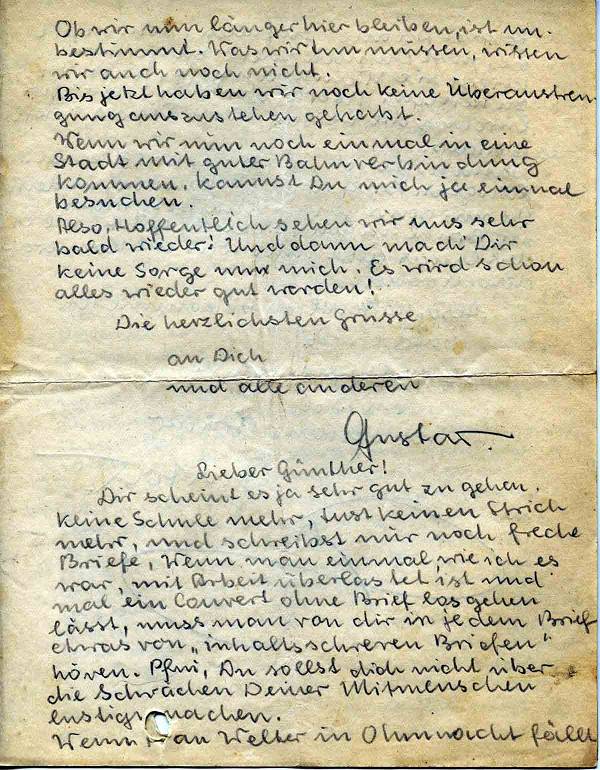 Ob wir nun länger hier bleiben, ist un-
bestimmt. Was wir tun müssen, wissen
wir auch noch nicht.
Bis jetzt haben wir noch keine Überanstren
gung auszustehen gehabt.
Wenn wir nun noch einmal in eine
Stadt mit guter Bahnverbindung
kommen, kannst Du mich ja einmal
besuchen.
Also, Hoffentlich sehen wir uns sehr
bald wieder! Und dann mach Dir
keine Sorge um mich. Es wird schon
alles wieder gut werden!
Die herzlichsten Grüsse
an Dich
und alle anderen
Gustav.
Lieber Günther!
Dir scheint es ja sehr gut zu gehen.
Keine Schule mehr, tust keinen Strich
mehr, und schreibst nur noch freche
Briefe, Wenn man einmal, wie ich es
war, mit Arbeit überlastet ist und
mal ein Couvert ohne Brief losgehen
lässt, muss man von dir in jedem Brief
etwas von „inhaltsschweren Briefen"
hören. Pfui, Du sollst dich nicht über
die Schwächen Deiner Mitmenschen
lustig machen.
Wenn Frau Welter in Ohnmacht fällt